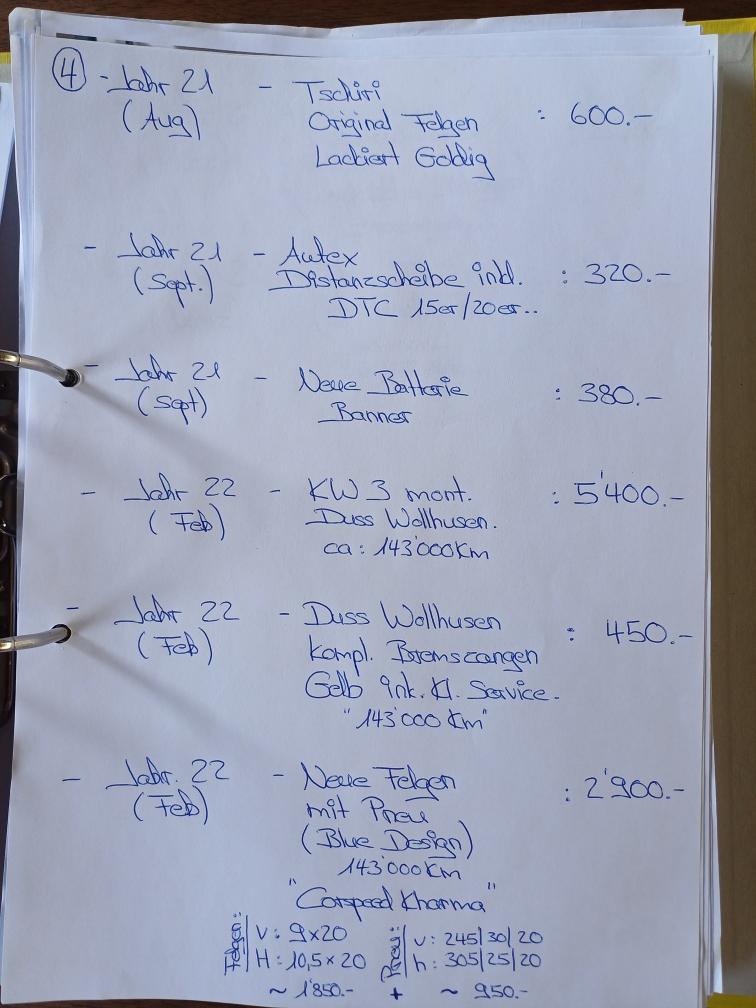 ④ - Jahr 21 - Tschiri
(Aug) Original Felgen : 600.-
Lackiert Goldig
- Jahr 21 - Autex
(Sept.) Distanzscheibe inkl. : 320.-
DTC 15er/20er..
- Jahr 21 - Neue Batterie : 380.-
(Sept) Banner
- Jahr 22 - KW 3 mont. : 5'400.-
(Feb) Duss Wollhusen.
ca: 143'000 Km
- Jahr 22 - Duss Wollhusen : 450.-
(Feb) kompl. Bremszangen
Gelb ink. Kl. Service.
"143'000 Km"
- Jahr. 22 - Neue Felgen : 2'900.-
(Feb) mit Pneu
(Blue Design)
143'000 Km
"Corspeed Kharma"
Felgen: V: 9x20 Pneu: v: 245/30/20
H: 10,5 x 20 h: 305/25/20
~ 1'850.- + ~ 950.-